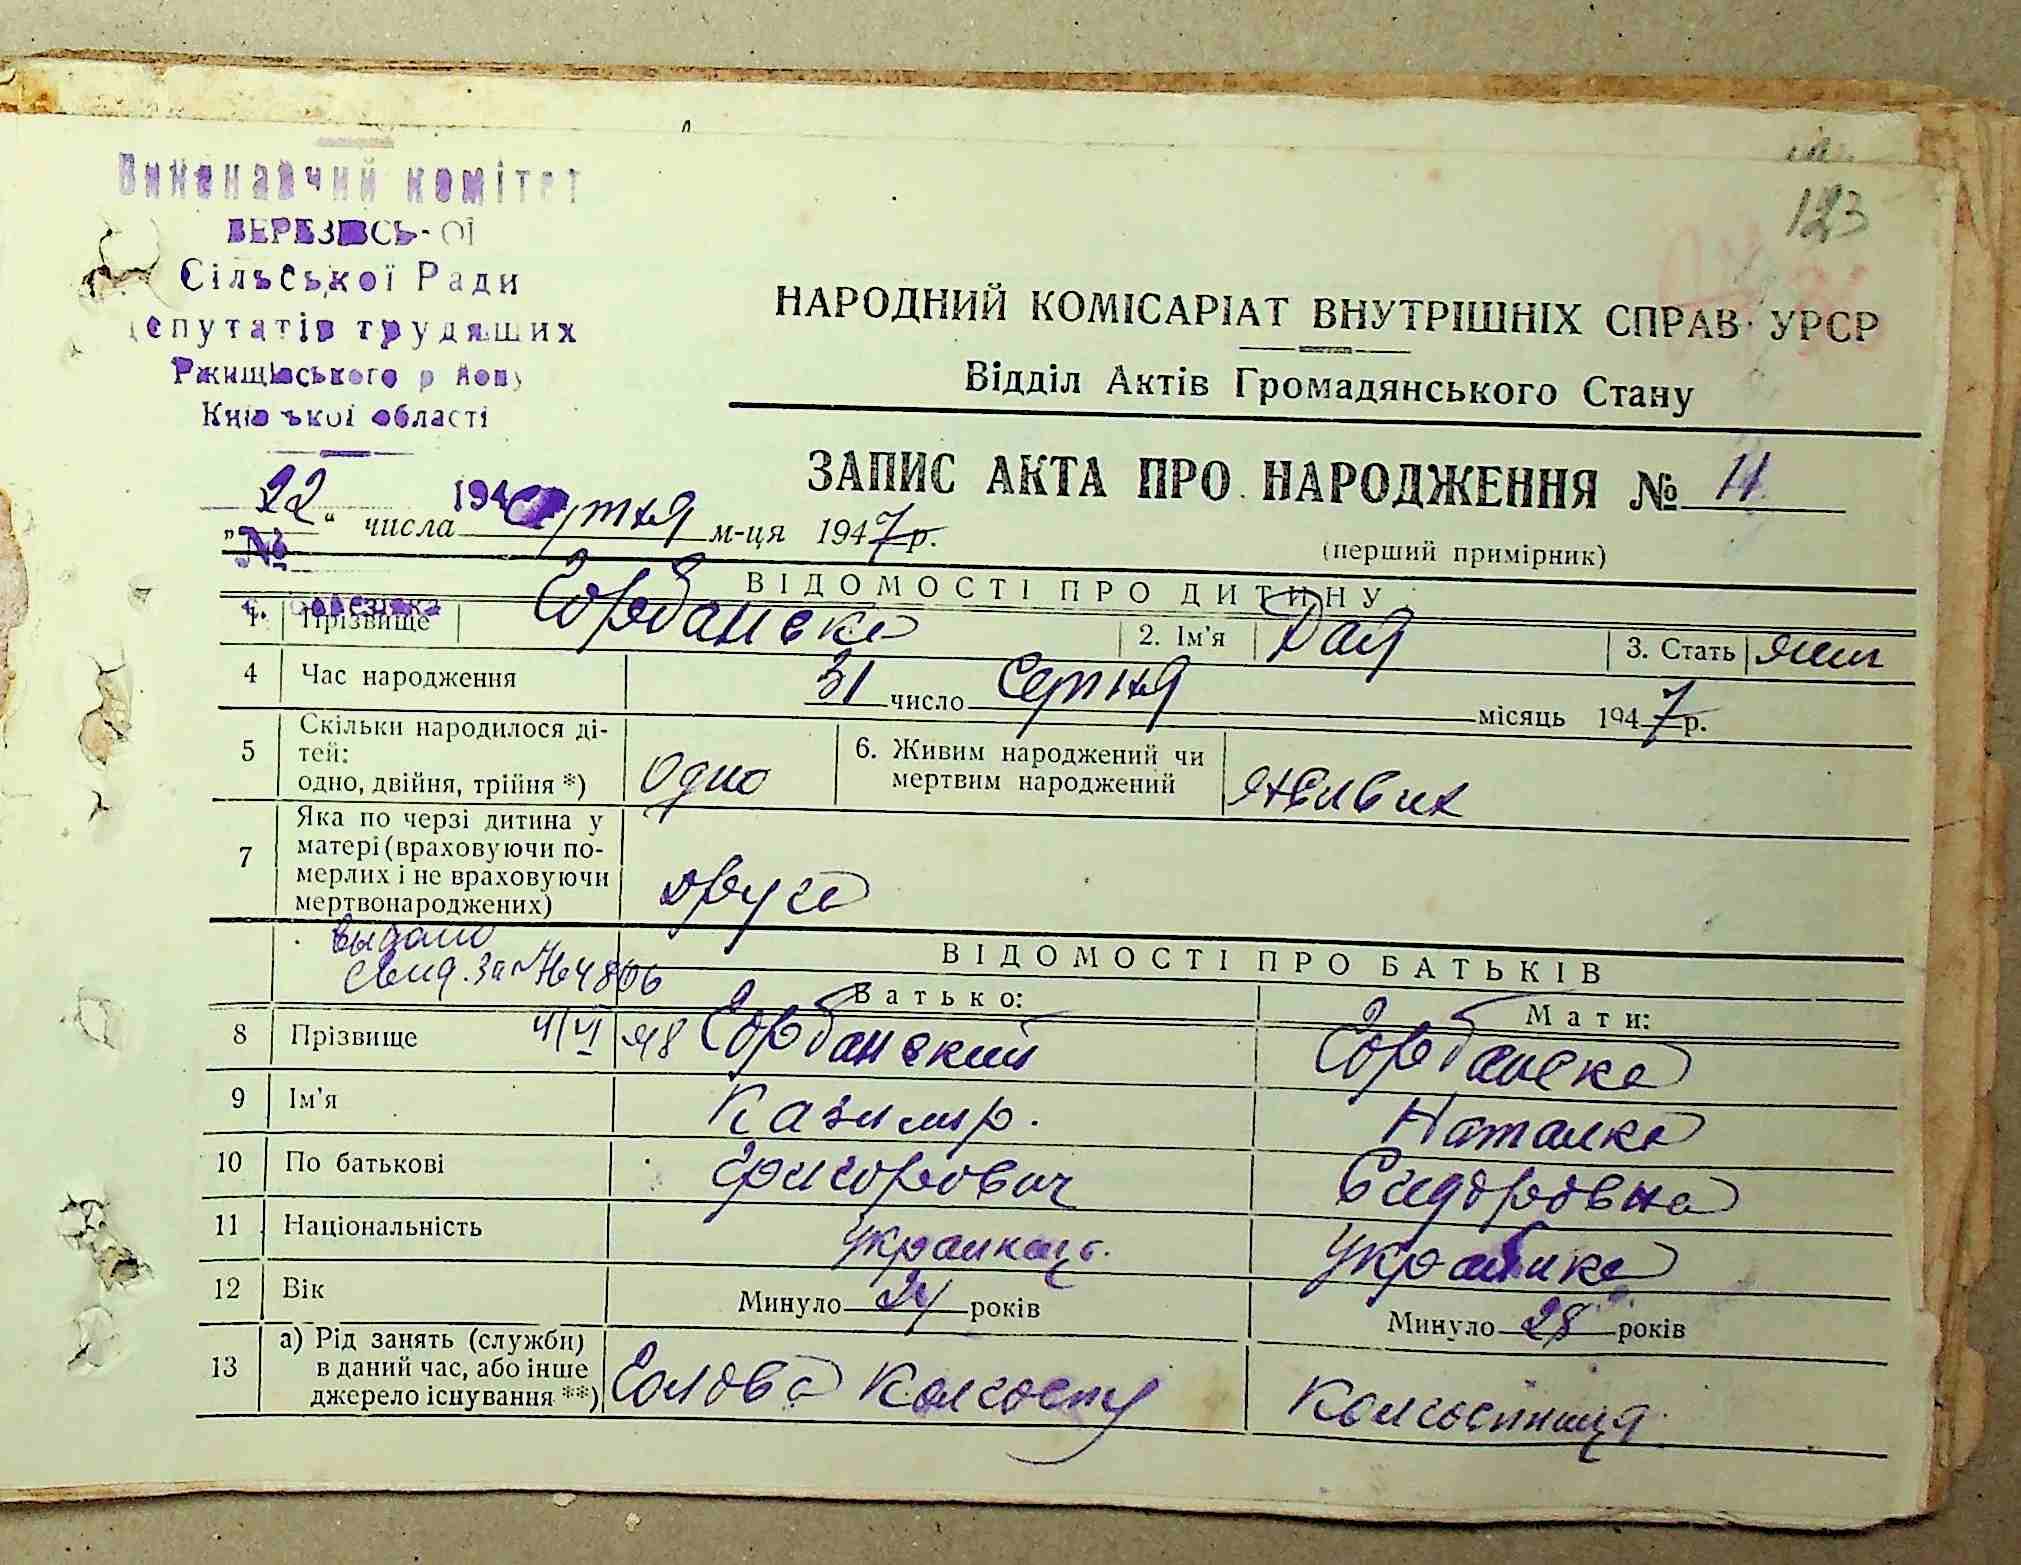 123
Виконавчий комітет
БЕРЕЗІВСЬ-ОЇ
Сільської Ради
депутатів трудящих
Ржищівського р йону
Київ ької області
НАРОДНИЙ КОМІСАРІАТ ВНУТРІШНІХ СПРАВ УРСР
Відділ Актів Громадянського Стану
ЗАПИС АКТА ПРО НАРОДЖЕННЯ № 11
(перший примірник)
194
„ 22 “ числа серпня м-ця 1947 р.
№
с. Березівка
ВІДОМОСТІ ПРО ДИТИНУ
1. Прізвище Горбанска 2. Ім'я 3. Стать жин
4 Час народження 31 число серпня місяць 1947 р.
5 Скільки народилося ді-
тей:
одно, двійня, трійня *) одно
6. Живим народжений чи
мертвим народжений живих
7 Яка по черзі дитина у
матері (враховуючи по-
мерлих і не враховуючи
мертвонароджених) друга
выдано
свид. за № 64806
4/VI 48
ВІДОМОСТІ ПРО БАТЬКІВ
Батько: Мати:
8 Прізвище Горбанский Горбанска
9 Ім'я Казимир. Наталка
10 По батькові Григорович Сидоровна
11 Національність українець. Українка
12 Вік Минуло 24 років Минуло 28 років
13 а) Рід занять (служби)
в даний час, або інше
джерело існування **) Голова колгоспу колгоспниця